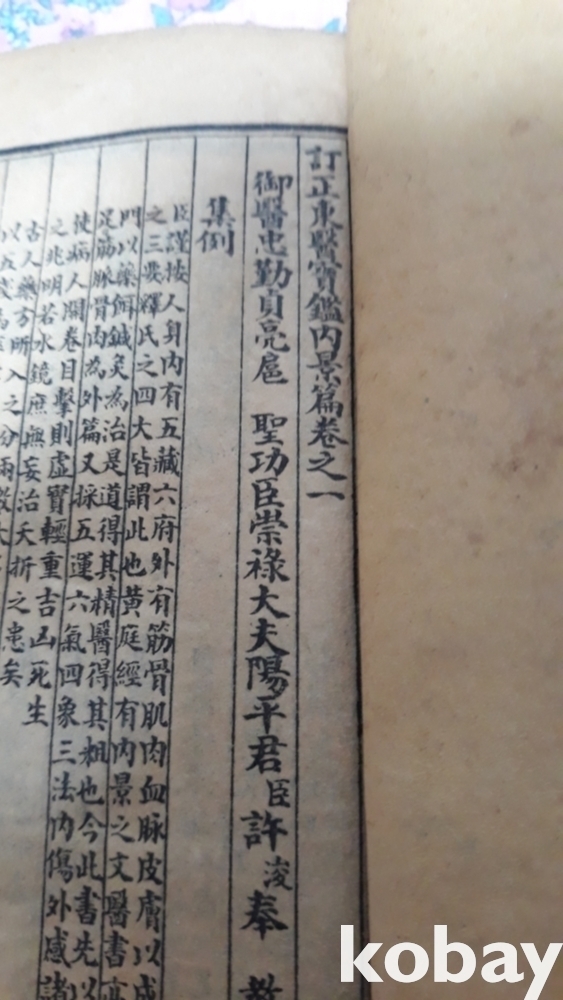 訂正東醫寶鑑內景篇卷之一
御醫忠勤貞亮扈 聖功臣崇祿大夫陽平君臣許浚奉 教
集例
臣謹按人身內有五藏六府外有筋骨肌肉血脉皮膚以成
之三要釋氏之四大皆謂此也黃庭經有內景之文醫書亦
門以藥餌鍼灸為治是道得其精醫得其粗也今此書先以
足筋脉骨肉為外篇又採五運六氣四象三法內傷外感諸
使病人開卷目擊則虛實輕重吉凶死生
之兆明若水鏡庶無妄治夭折之患矣
古人藥方所入之分兩
kobay